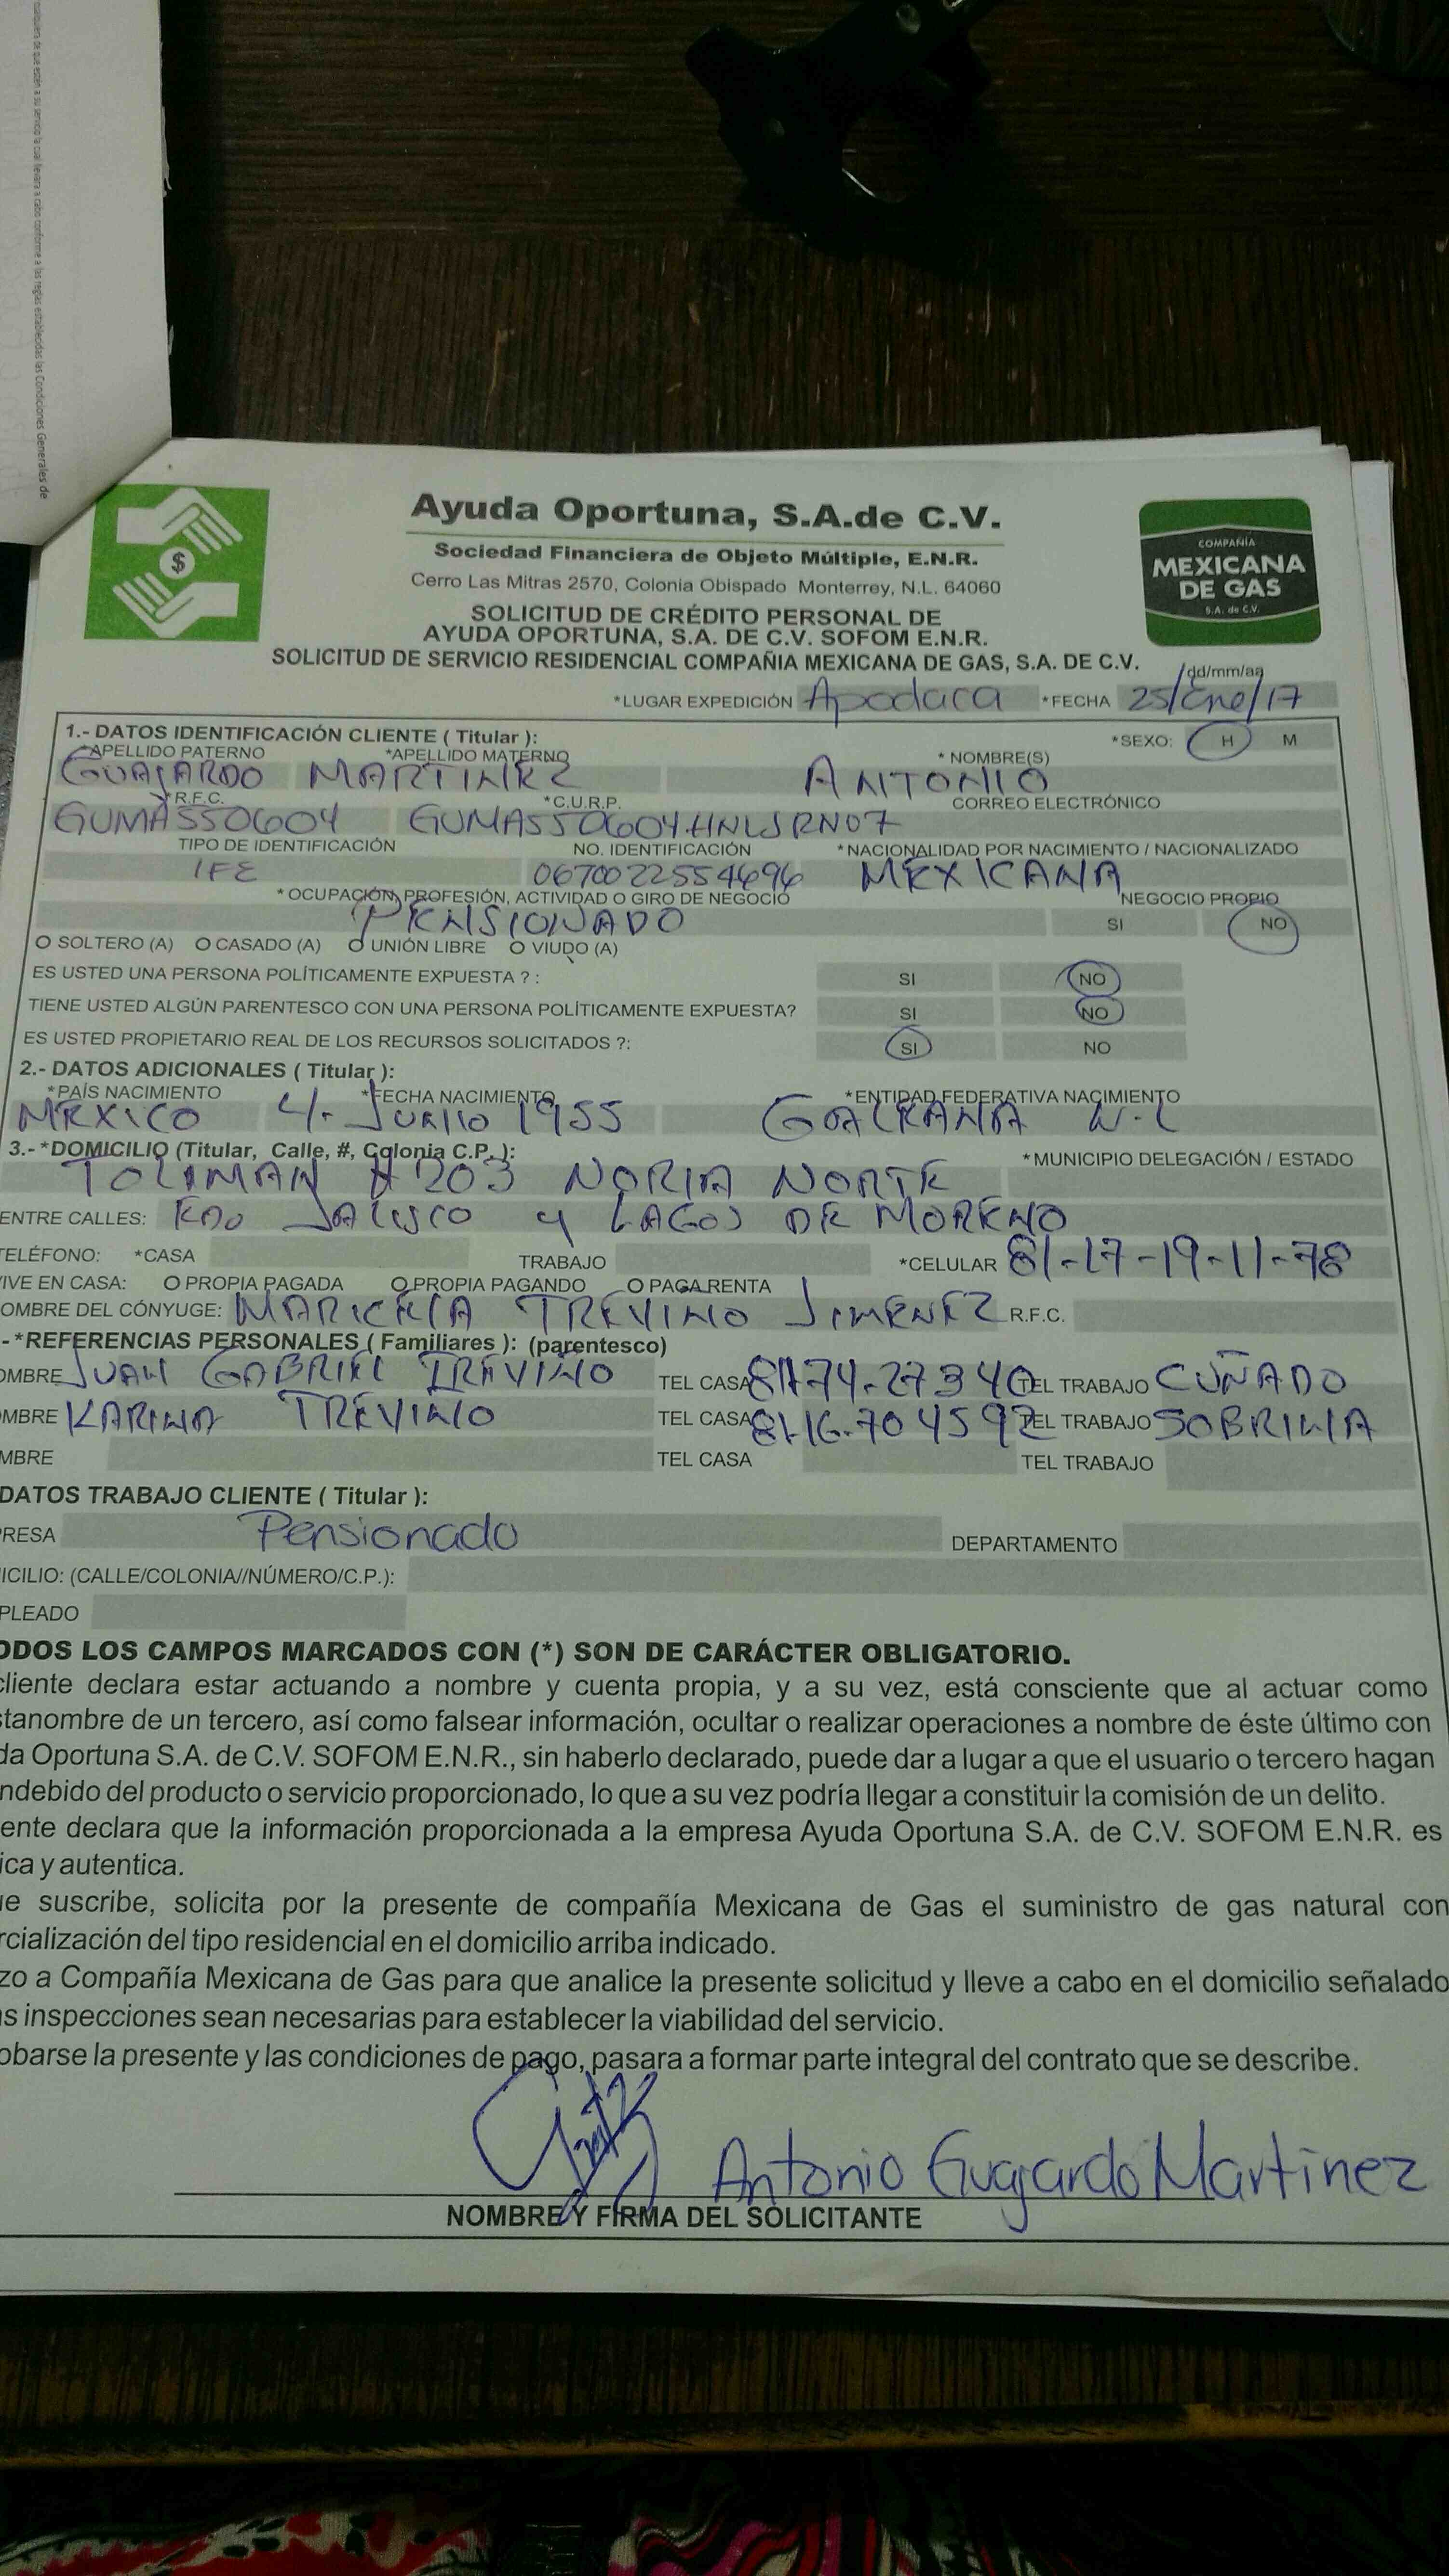 cualquiera de que estén a su servicio la cual llevara a cabo conforme a las reglas establecidas las Condiciones Generales de
$
Ayuda Oportuna, S.A.de C.V.
Sociedad Financiera de Objeto Múltiple, E.N.R.
Cerro Las Mitras 2570, Colonia Obispado Monterrey, N.L. 64060
COMPAÑÍA
MEXICANA
DE GAS
S.A. de C.V.
SOLICITUD DE CRÉDITO PERSONAL DE
AYUDA OPORTUNA, S.A. DE C.V. SOFOM E.N.R.
SOLICITUD DE SERVICIO RESIDENCIAL COMPAÑIA MEXICANA DE GAS, S.A. DE C.V.
dd/mm/aa
*LUGAR EXPEDICIÓN Apodaca *FECHA 25/Ene/17
1.- DATOS IDENTIFICACIÓN CLIENTE ( Titular ): *SEXO: H M
*APELLIDO PATERNO *APELLIDO MATERNO * NOMBRE(S)
GUAJARDO MARTINEZ ANTONIO
*R.F.C. *C.U.R.P. CORREO ELECTRÓNICO
GUMA550604 GUMA550604HNLJRN07
TIPO DE IDENTIFICACIÓN NO. IDENTIFICACIÓN *NACIONALIDAD POR NACIMIENTO / NACIONALIZADO
IFE 0670022554696 MEXICANA
* OCUPACIÓN, PROFESIÓN, ACTIVIDAD O GIRO DE NEGOCIO NEGOCIO PROPIO
PENSIONADO SI NO
O SOLTERO (A) O CASADO (A) O UNIÓN LIBRE O VIUDO (A)
ES USTED UNA PERSONA POLÍTICAMENTE EXPUESTA ? : SI NO
TIENE USTED ALGÚN PARENTESCO CON UNA PERSONA POLÍTICAMENTE EXPUESTA? SI NO
ES USTED PROPIETARIO REAL DE LOS RECURSOS SOLICITADOS ?: SI NO
2.- DATOS ADICIONALES ( Titular ):
*PAÍS NACIMIENTO *FECHA NACIMIENTO *ENTIDAD FEDERATIVA NACIMIENTO
MEXICO 4-JUNIO 1955 GALEANA N.L
3.- *DOMICILIO (Titular, Calle, #, Colonia C.P. ): *MUNICIPIO DELEGACIÓN / ESTADO
TOLIMAN #203 NORIA NORTE
ENTRE CALLES: EDO JALISCO Y LAGOS DE MORENO
TELÉFONO: *CASA TRABAJO *CELULAR 81-17-19-11-78
IVE EN CASA: O PROPIA PAGADA O PROPIA PAGANDO O PAGA RENTA
OMBRE DEL CÓNYUGE: MARICELA TREVINO JIMENEZ R.F.C.
-*REFERENCIAS PERSONALES ( Familiares ): (parentesco)
OMBRE JUAN GABRIEL TREVINO TEL CASA 8174-27340 TEL TRABAJO CUÑADO
MBRE KARINA TREVINO TEL CASA 81-16-704592 TEL TRABAJO SOBRINA
MBRE TEL CASA TEL TRABAJO
DATOS TRABAJO CLIENTE ( Titular ):
PRESA Pensionado DEPARTAMENTO
ICILIO: (CALLE/COLONIA//NÚMERO/C.P.):
PLEADO
ODOS LOS CAMPOS MARCADOS CON (*) SON DE CARÁCTER OBLIGATORIO.
cliente declara estar actuando a nombre y cuenta propia, y a su vez, está consciente que al actuar como
stanombre de un tercero, así como falsear información, ocultar o realizar operaciones a nombre de éste último con
da Oportuna S.A. de C.V. SOFOM E.N.R., sin haberlo declarado, puede dar a lugar a que el usuario o tercero hagan
ndebido del producto o servicio proporcionado, lo que a su vez podría llegar a constituir la comisión de un delito.
ente declara que la información proporcionada a la empresa Ayuda Oportuna S.A. de C.V. SOFOM E.N.R. es
ica y autentica.
ue suscribe, solicita por la presente de compañía Mexicana de Gas el suministro de gas natural con
rcialización del tipo residencial en el domicilio arriba indicado.
zo a Compañía Mexicana de Gas para que analice la presente solicitud y lleve a cabo en el domicilio señalado
as inspecciones sean necesarias para establecer la viabilidad del servicio.
obarse la presente y las condiciones de pago, pasara a formar parte integral del contrato que se describe.
Antonio Guajardo Martinez
NOMBRE Y FIRMA DEL SOLICITANTE